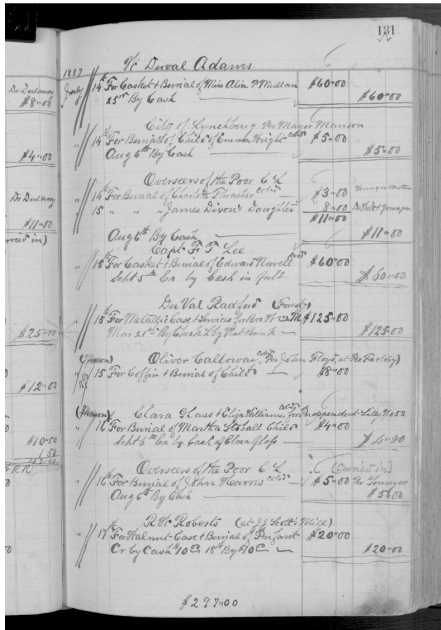 181
Duval Adams
1889
July 14th For Casket & Burial of Miss Alice $60.00
25th By Cash $60.00
City of Lynchburg Per Mayor Manson
14th For Burial of Child of Emma Wright cold $5.00
Aug 6th By Cash $5.00
Overseers of the Poor C L
14th For Burial of Charlotte Thrasher cold $3.00
15 " " " James Dixons Daughter 8.00
$11.00
Aug 6th By Cash $11.00
Capt F T Lee
15th For Casket & Burial of Edward cold $60.00
Sept 5th Cr by Cash in full $60.00
Du Val Radford (Forest)
15th For Metalic Case & Services $125.00
Mar 21st By Check Natl Bank $125.00
Oliver Calloway cold Per John Floyd at Factory)
15 For Coffin & Burial of Child $8.00
Clara Glass & Eliza Williams cold For Independent No 52
16 For Burial of Martha Child $4.00
Sept 5th Cr by Cash of Clara Glass
Overseers of the Poor C L
16th For Burial of John Harris cold $5.00 Per Younger
Aug 6th By Cash $5.00
R W Roberts (at J J Scotts Mill)
17th For Walnut Case & Burial of Infant $20.00
Cr by Cash $10.00 18th By $10.00 $20.00
$297.00
Dr Dulaney
$8.00
$4.00
Dr Dulany
$11.00
$25.00
$12.00
$10.50